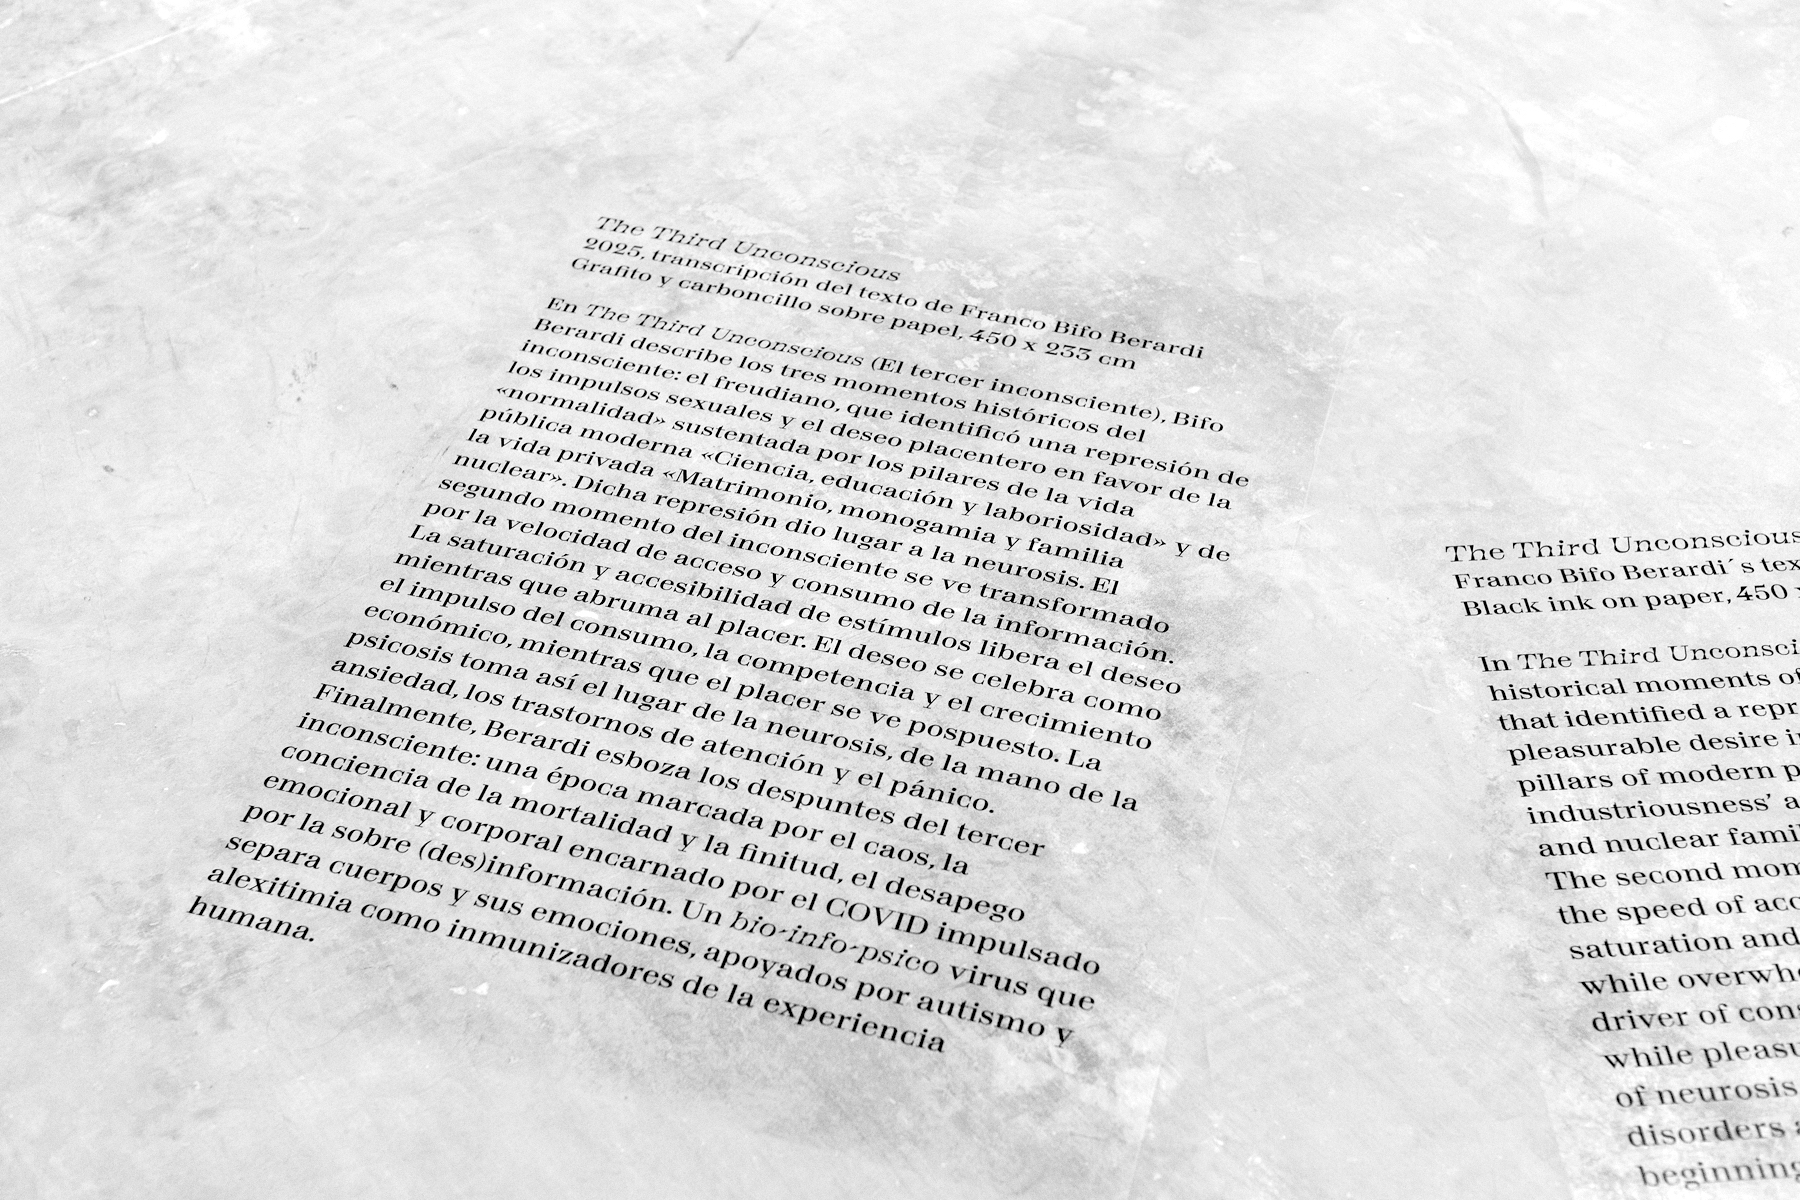 The Third Unconscious
2025, transcripción del texto de Franco Bifo Berardi
Grafito y carboncillo sobre papel, 450 x 233 cm
En The Third Unconscious (El tercer inconsciente), Bifo
Berardi describe los tres momentos históricos del
inconsciente: el freudiano, que identificó una represión de
los impulsos sexuales y el deseo placentero en favor de la
«normalidad» sustentada por los pilares de la vida
pública moderna «Ciencia, educación y laboriosidad» y de
la vida privada «Matrimonio, monogamia y familia
nuclear». Dicha represión dio lugar a la neurosis. El
segundo momento del inconsciente se ve transformado
por la velocidad de acceso y consumo de la información.
La saturación y accesibilidad de estímulos libera el deseo
mientras que abruma al placer. El deseo se celebra como
el impulso del consumo, la competencia y el crecimiento
económico, mientras que el placer se ve pospuesto. La
psicosis toma así el lugar de la neurosis, de la mano de la
ansiedad, los trastornos de atención y el pánico.
Finalmente, Berardi esboza los despuntes del tercer
inconsciente: una época marcada por el caos, la
conciencia de la mortalidad y la finitud, el desapego
emocional y corporal encarnado por el COVID impulsado
por la sobre (des)información. Un bio-info-psico virus que
separa cuerpos y sus emociones, apoyados por autismo y
alexitimia como inmunizadores de la experiencia
humana.
The Third Unconscious
Franco Bifo Berardi´s tex
Black ink on paper, 450 x
In The Third Unconsci
historical moments of
that identified a repr
pleasurable desire in
pillars of modern p
industriousness' a
and nuclear famil
The second mom
the speed of acc
saturation and
while overwhe
driver of cons
while pleasu
of neurosis
disorders a
beginning